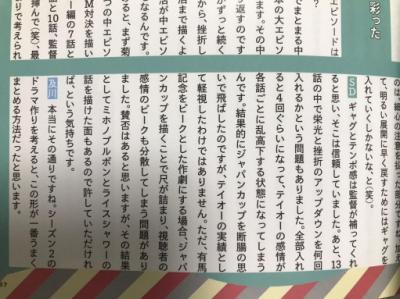 彩った
エピソードは
でまとまる中
本の大エピ
ます。その中
返すのです
がずっと続く
から、挫折し
活まで描くよ
が中エピソ
なるんです。
ると、まず菊
M対決を描い
ー編の7話と
と10話、監督
弾んで(笑)、最
りで考えられ
のは、細心の注意を払った部分ですし、加え
て、明るい展開に早く戻すためにはギャグを
入れていくしかないな、と(笑)。
SD ギャグとテンポ感は監督が補ってくれ
ると思い、そこは信頼していました。あと、13
話の中で栄光と挫折のアップダウンを何回
入れるかという問題もありました。全部入れ
ると4回ぐらいになって、テイオーの感情が
各話ごとに乱高下する状態になってしまう
んです。結果的にジャパンカップを断腸の思
いで飛ばしたのですが、テイオーの実績とし
て軽視したわけではありません。ただ、有馬
記念をピークとした作劇にする場合、ジャパ
ンカップを描くことで尺が詰まり、視聴者の
感情のピークも分散してしまう問題があり
ました。賛否はあると思いますが、その結果
としてミホノブルボンとライスシャワーの
話を描けた面もあるので許していただけれ
ば、という気持ちです。
及川 本当にその通りですね。シーズン2の
ドラマ作りを考えると、この形が一番うまく
まとめる方法だったと思います。